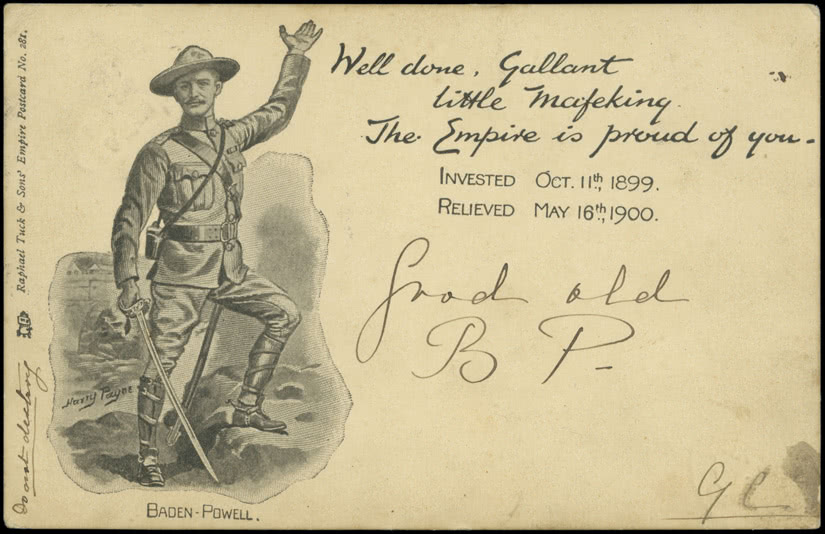 Raphael Tuck & Sons' Empire Postcard No. 281.
Well done, Gallant
little Mafeking.
The Empire is proud of you.
INVESTED OCT. 11th, 1899.
RELIEVED MAY 16th, 1900.
Good old
B P.
Harry Payne
Do not destroy
BADEN-POWELL.
G C